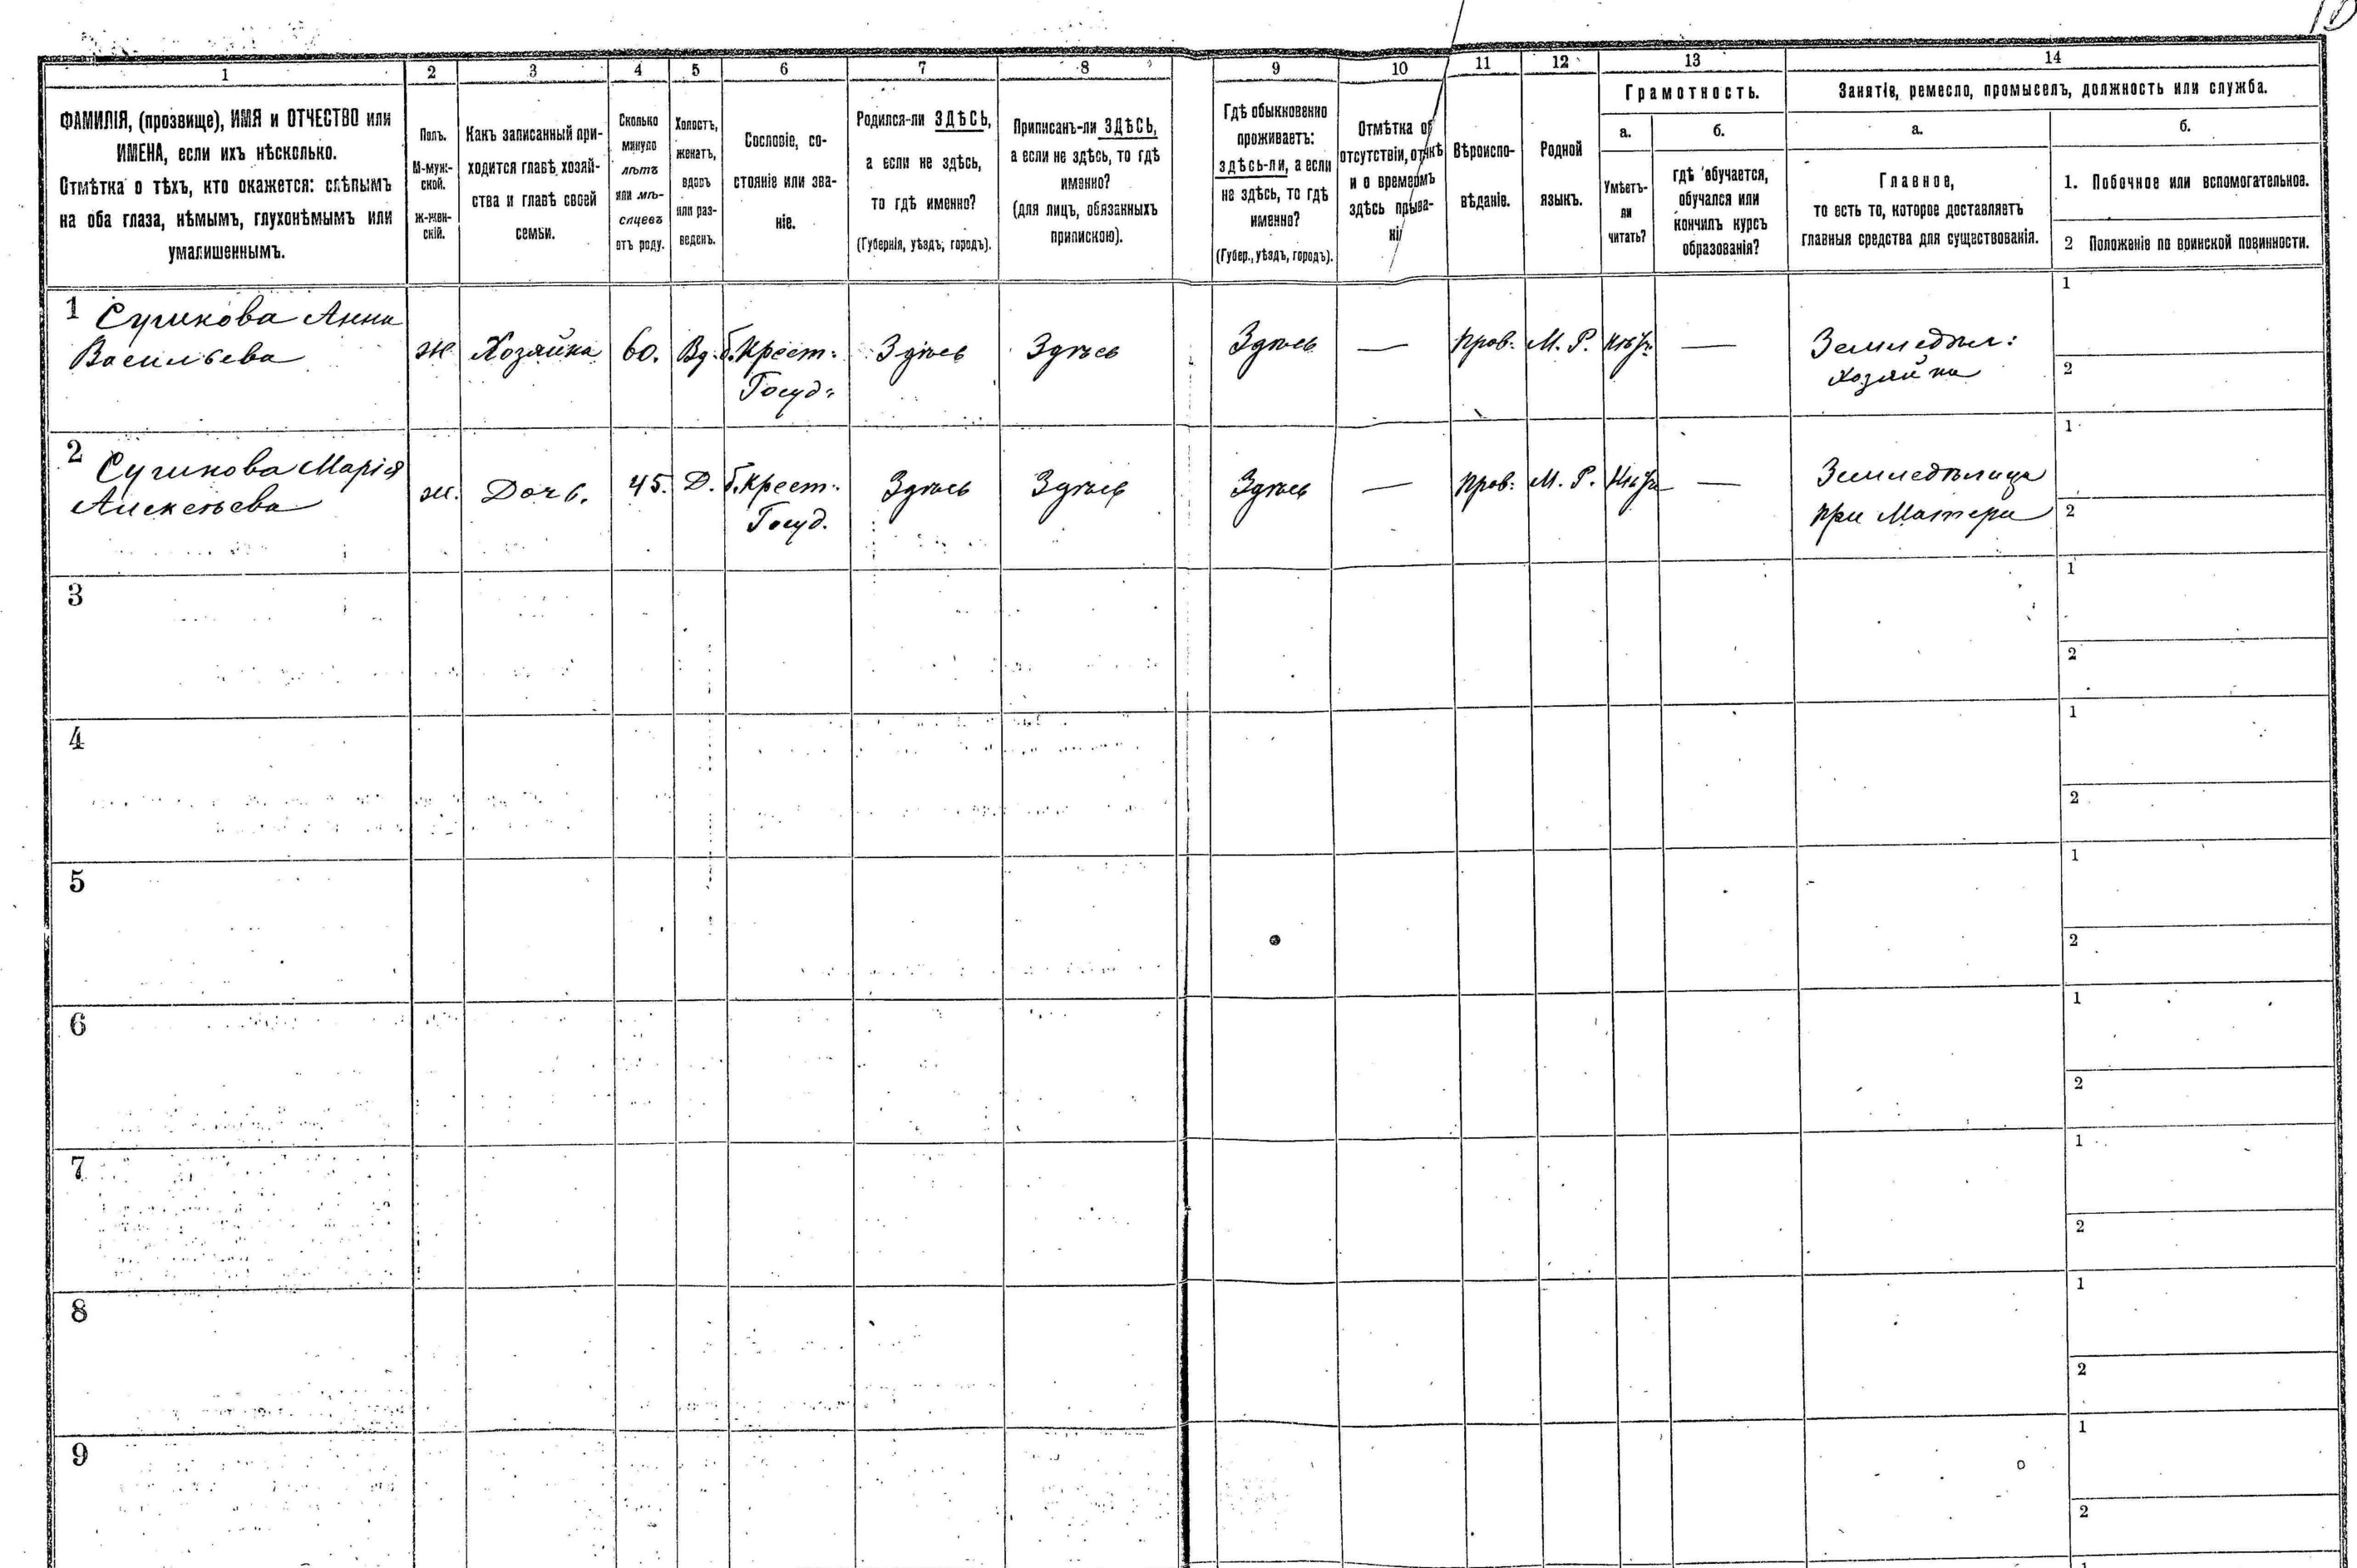 1 2 3 4 5 6 7 8 9 10 11 12 13 14
ФАМИЛІЯ, (прозвище), ИМЯ и ОТЧЕСТВО или
ИМЕНА, если ихъ нѣсколько.
Отмѣтка о тѣхъ, кто окажется: слѣпымъ
на оба глаза, нѣмымъ, глухонѣмымъ или
умалишеннымъ.
Полъ.
М-муж-
ской.
ж-жен-
скій.
Какъ записанный при-
ходится главѣ хозяй-
ства и главѣ своей
семьи.
Сколько
минуло
лѣтъ
или мѣ-
сяцевъ
отъ роду.
Холостъ,
женатъ,
вдовъ
или раз-
веденъ.
Сословіе, со-
стояніе или зва-
ніе.
Родился-ли ЗДѢСЬ,
а если не здѣсь,
то гдѣ именно?
(Губернія, уѣздъ, городъ).
Приписанъ-ли ЗДѢСЬ,
а если не здѣсь, то гдѣ
именно?
(для лицъ, обязанныхъ
припискою).
Гдѣ обыкновенно
проживаетъ:
здѣсь-ли, а если
не здѣсь, то гдѣ
именно?
(Губер., уѣздъ, городъ).
Отмѣтка об
отсутствіи,
и о
здѣсь
Вѣроиспо-
вѣданіе.
Родной
языкъ.
Грамотность.
а.
Умѣетъ-
ли
читать?
б.
гдѣ обучается,
обучался или
кончилъ курсъ
образованія?
Занятіе, ремесло, промыселъ, должность или служба.
а.
Главное,
то есть то, которое доставляетъ
главныя средства для существованія.
б.
1. Побочное или вспомогательное.
2 Положеніе по воинской повинности.
1 Анна
Васильева
ж Хозяйка 60. Вд. б. Крест: Здѣсь Здѣсь Здѣсь — Прав. М. Р. —
Госуд:
Земледѣл:
хозяйка
1
2
2 Марія
Алексѣева
ж. Дочь. 45. Д. б. Крест. Здѣсь Здѣсь Здѣсь — Прав. М. Р. —
Госуд.
Земледѣлица
при Матери
1
2
3
1
2
4
1
2
5
1
2
6
1
2
7
1
2
8
1
2
9
1
2